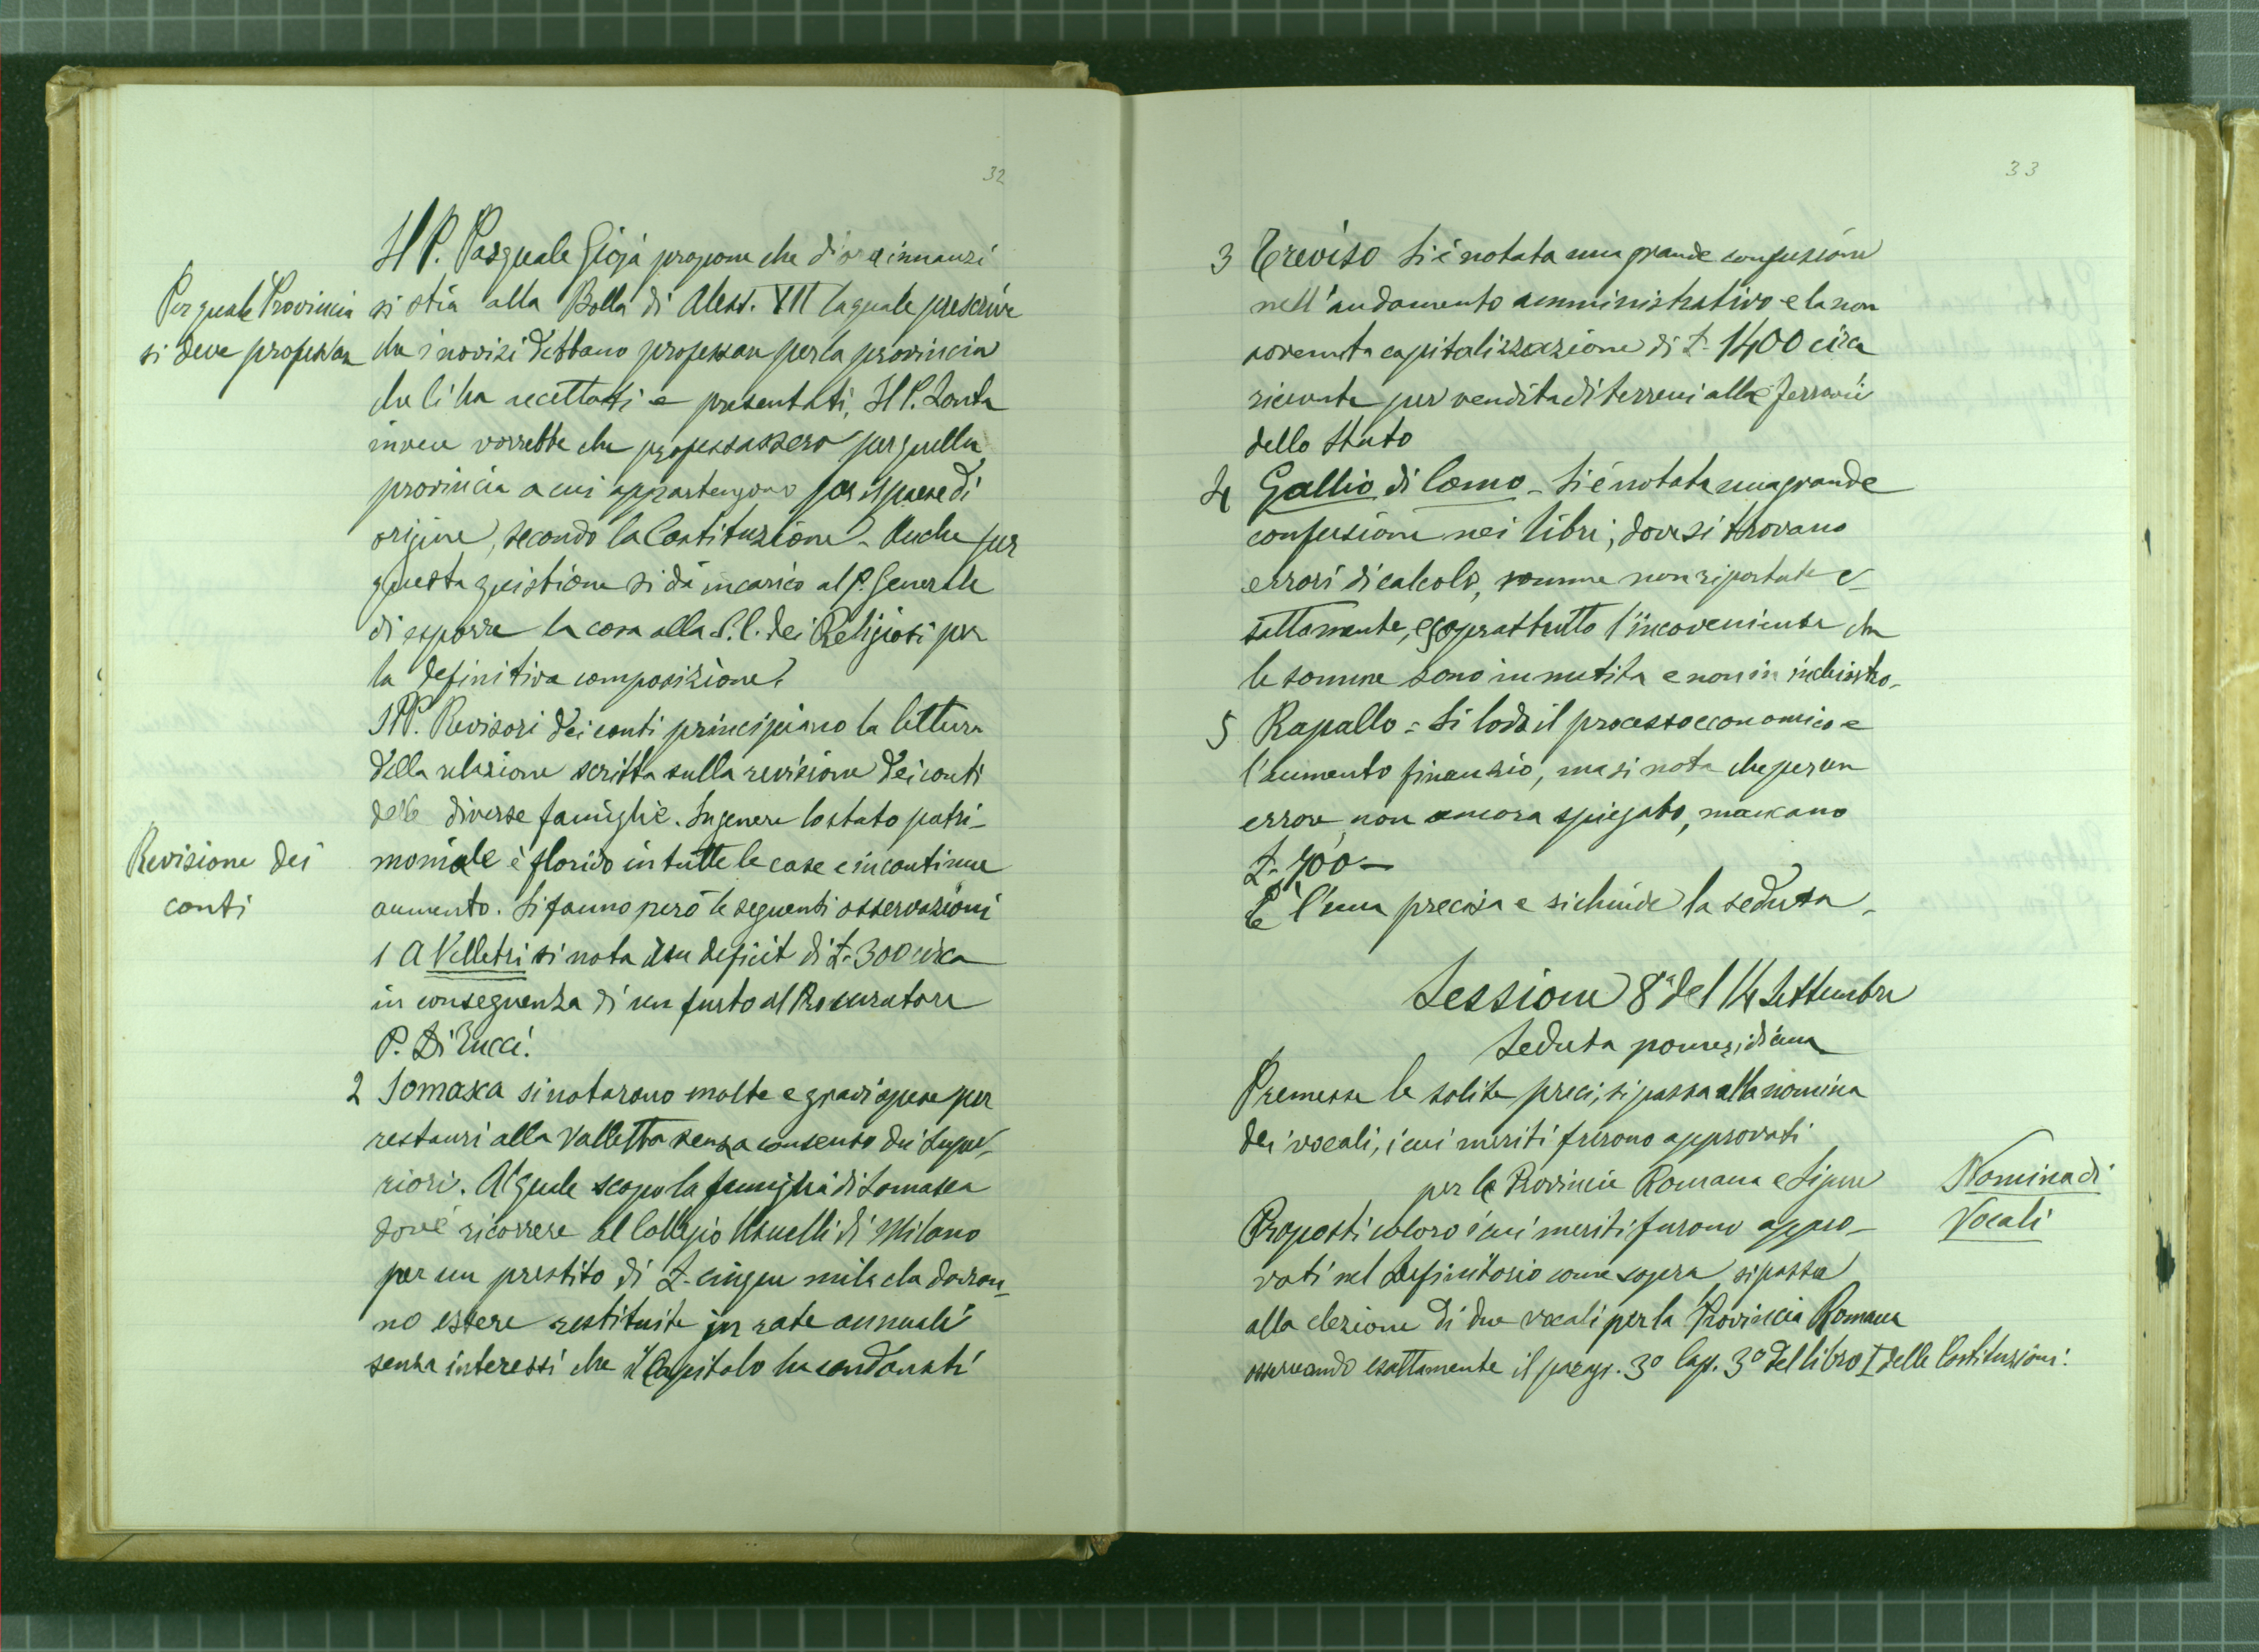 32
Il P. Pasquale Gioja propone che d'ora innanzi
Per quale Provincia
si deve professare
si stia alla Bolla di Aless. VII la quale prescrive
che i novizi debbano professare per la provincia
che li ha accettati e presentati, Il P. Zonta
invece vorrebbe che professassero per quella
provincia a cui appartengono per il paese di
origine, secondo la Costituzione. Anche per
questa quistione si dà incarico al P. Generale
di esporre la cosa alla S. C. dei Religiosi per
la definitiva composizione.
I PP. Revisori dei conti principiano la lettura
della relazione scritta sulla revisione dei conti
delle diverse famiglie. In genere lo stato patri-
Revisione dei
conti
moniale è florido in tutte le case e in continuo
aumento. Si fanno però le seguenti osservazioni
1 A Velletri si nota un deficit di L. 300 circa
in conseguenza di un furto al Procuratore
P. Di Tucci.
2 Somasca si notarono molte e gravi spese per
restauri alla Valletta senza consenso dei Supe-
riori. Al quale scopo la famiglia di Somasca
dovè ricorrere al Collegio Usuelli di Milano
per un prestito di L. cinque mila che dovran-
no essere restituite in rate annuali
senza interessi che il Capitolo ha condonati
33
3 Treviso Si è notata una grande confusione
nell'andamento amministrativo e la non
avvenuta capitalizzazione di L. 1400 circa
ricevute per vendita di terreni alle ferrovie
dello Stato
4 Gallio di Como - Si è notata una grande
confusione nei libri; dove si trovano
errori di calcolo, somme non riportate e-
sattamente, e soprattutto l'incoveniente che
le somme sono in matita e non in inchiostro.
5 Rapallo = Si loda il processo economico e
l'aumento finanzio, ma si nota che per un
errore non ancora spiegato, mancano
L. 700 -
È l'ora precisa e si chiude la seduta.
Sessione 8ª del 14 Settembre
Seduta pomeridiana
Premesse le solite preci, si passa alla nomina
dei vocali, i cui meriti furono approvati
per le Provincie Romana e Ligure
Nomina di
Vocali
Proposti coloro i cui meriti furono appro-
vati nel Definitorio come sopra, si passa
alla elezione di due vocali per la Provincia Romana
osservando esattamente il parag. 3º Cap. 3º del libro I delle Costituzioni.